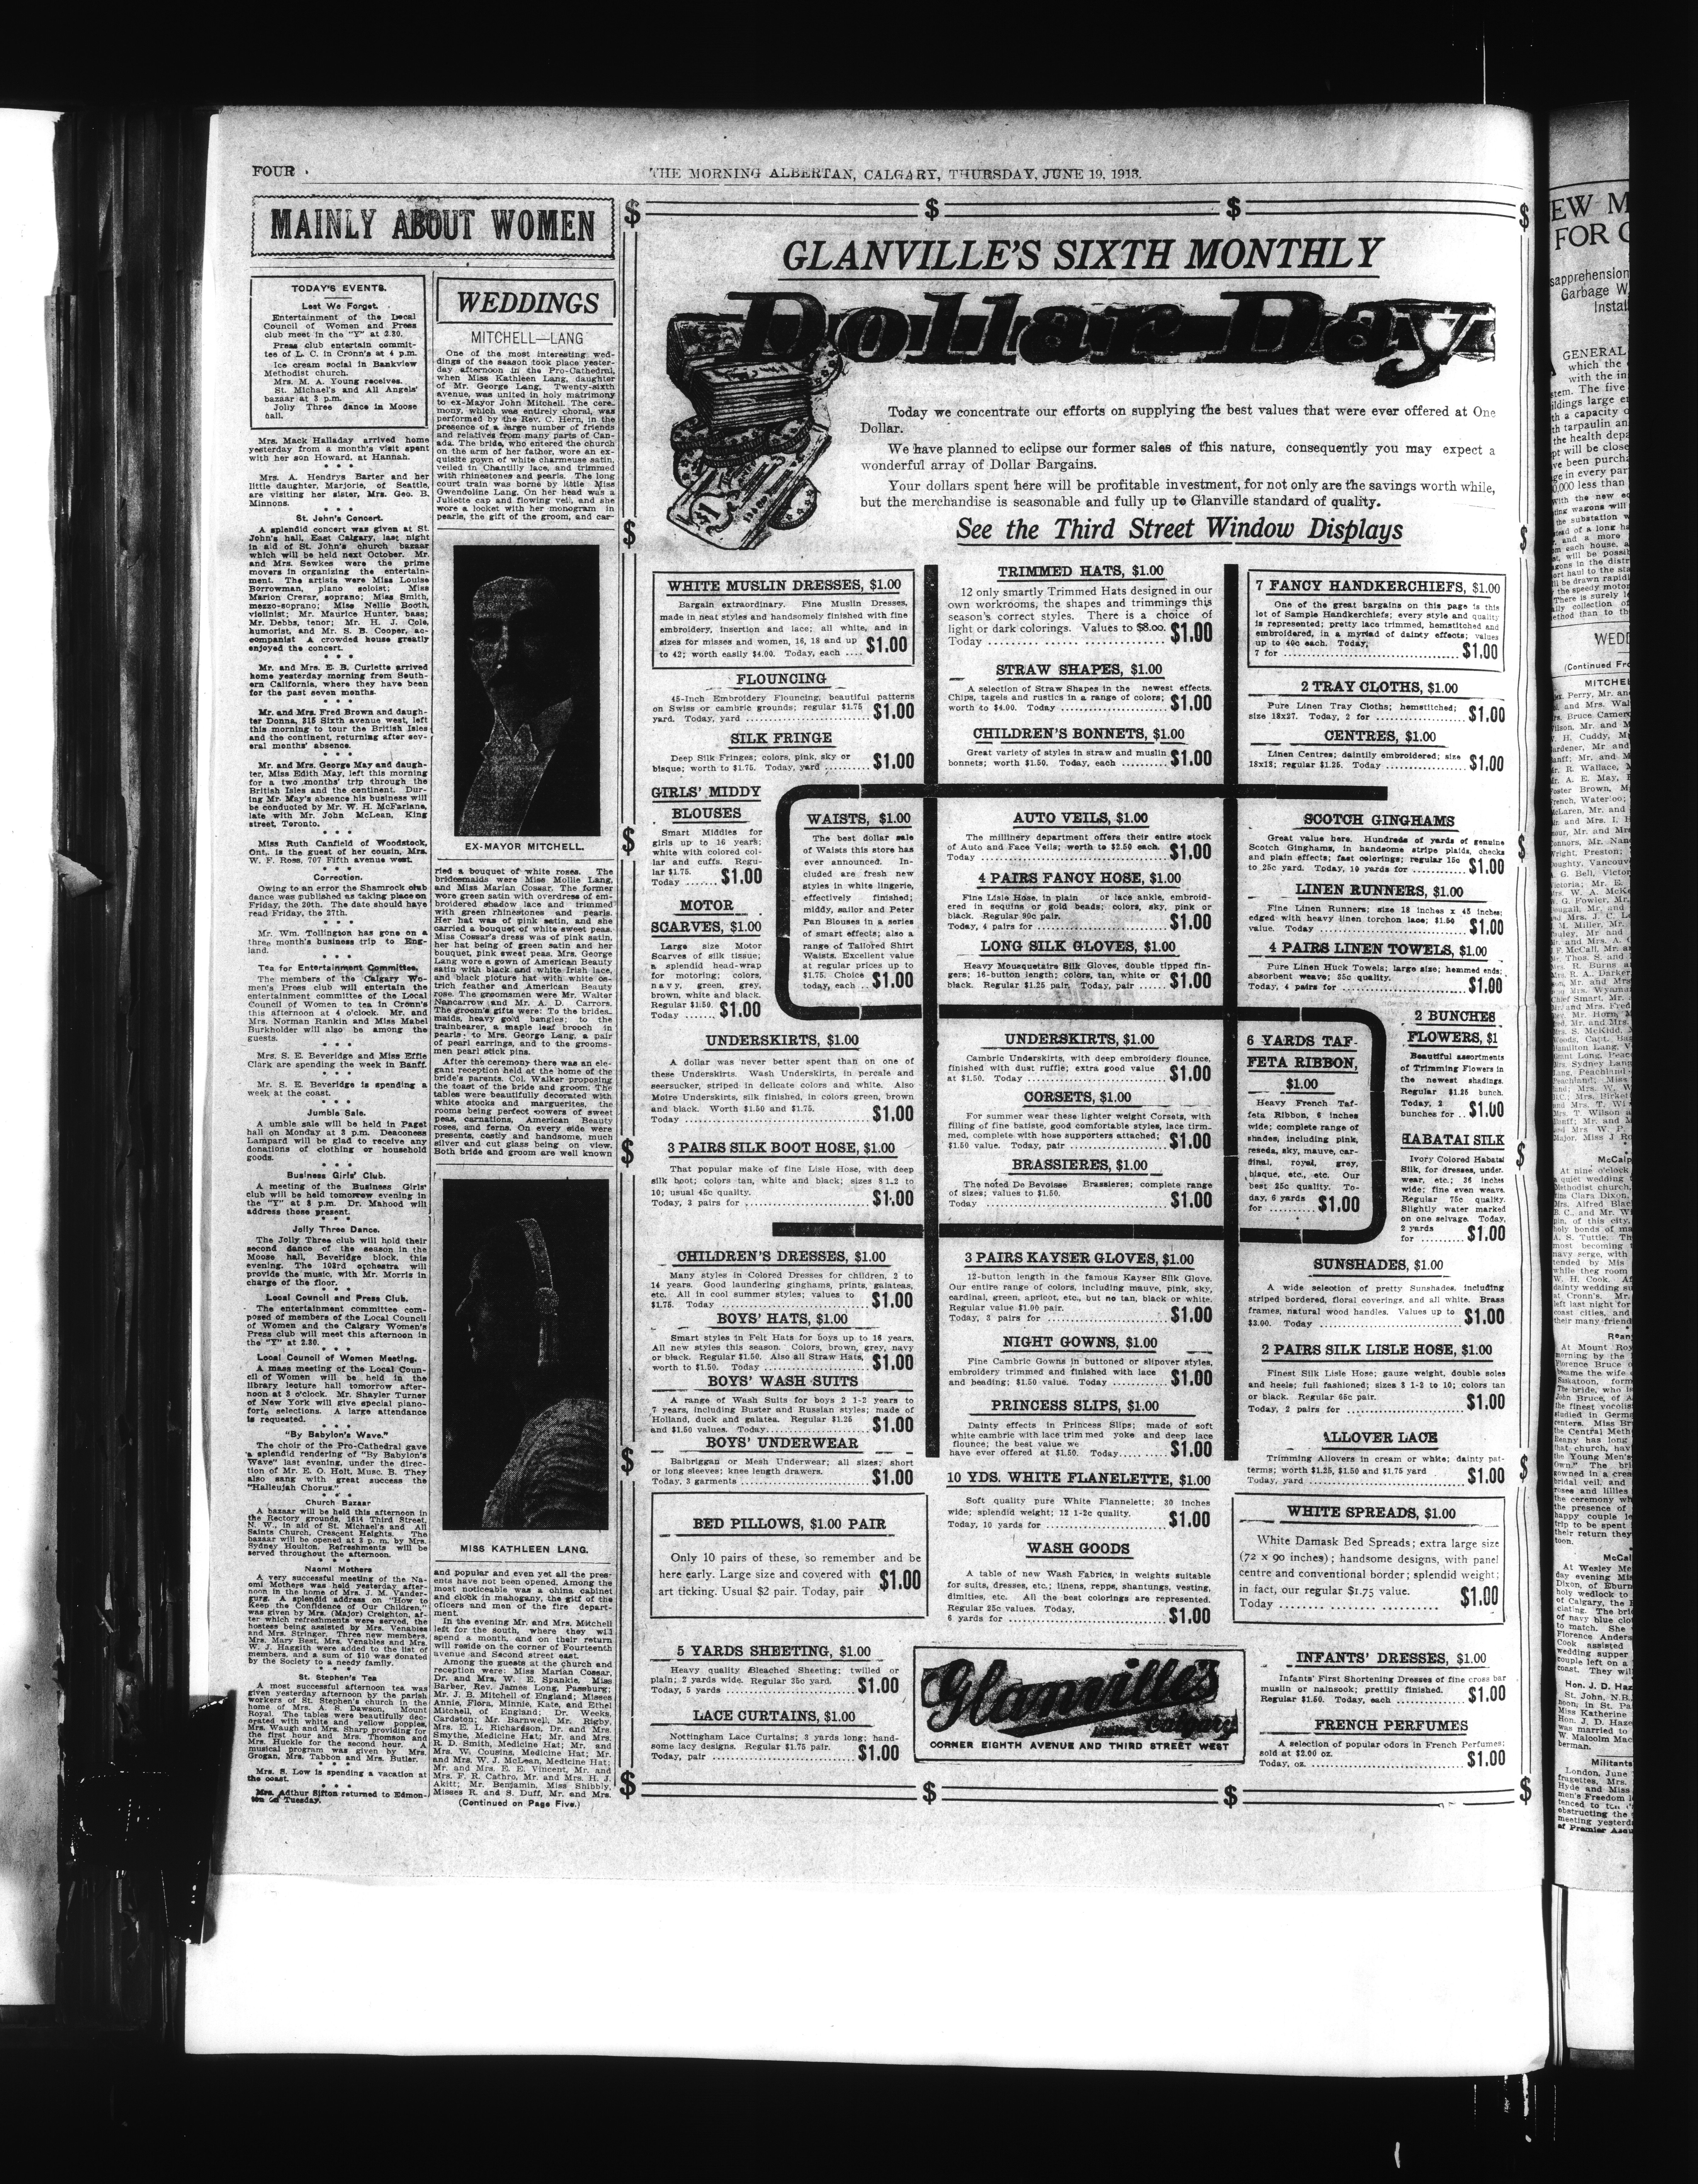 FOUR
THE MORNING ALBERTAN, CALGARY, THURSDAY, JUNE 19, 1913.
MAINLY ABOUT WOMEN
TODAY'S EVENTS.
Lest We Forget.
Entertainment of the Local
Council of Women and Press
club meet in the "Y" at 2.30.
Press club entertain commit-
tee of L. C. in Cronn's at 4 p.m.
Ice cream social in Bankview
Methodist church.
Mrs. M. A. Young receives.
St. Michael's and All Angels'
bazaar at 3 p.m.
Jolly Three dance in Moose
hall.
Mrs. Mack Halladay arrived home
yesterday from a month's visit spent
with her son Howard, at Hannah.
* * *
Mrs. A. Hendrys Barter and her
little daughter, Marjorie, of Seattle,
are visiting her sister, Mrs. Geo. B.
Minnons.
* * *
St. John's Concert.
A splendid concert was given at St.
John's hall, East Calgary, last night
in aid of St. John's church bazaar
which will be held next October. Mr.
and Mrs. Sewkes were the prime
movers in organizing the entertain-
ment. The artists were Miss Louise
Borrowman, piano soloist; Miss
Marion Crerar, soprano; Miss Smith,
mezzo-soprano; Miss Nellie Booth,
violinist; Mr. Maurice Hunter, bass;
Mr. Debbs, tenor; Mr. H. J. Cole,
humorist, and Mr. S. B. Cooper, ac-
companist A crowded house greatly
enjoyed the concert.
* * *
Mr. and Mrs. E. B. Curlette arrived
home yesterday morning from South-
ern California, where they have been
for the past seven months.
* * *
Mr. and Mrs. Fred Brown and daugh-
ter Donna, 315 Sixth avenue west, left
this morning to tour the British Isles
and the continent, returning after sev-
eral months' absence.
* * *
Mr. and Mrs. George May and daugh-
ter, Miss Edith May, left this morning
for a two months' trip through the
British Isles and the continent. Dur-
ing Mr. May's absence his business will
be conducted by Mr. W. H. McFarlane,
late with Mr. John McLean, King
street, Toronto.
* * *
Miss Ruth Canfield of Woodstock,
Ont., is the guest of her cousin, Mrs.
W. F. Ross, 707 Fifth avenue west.
* * *
Correction.
Owing to an error the Shamrock club
dance was published as taking place on
Friday, the 20th. The date should have
read Friday, the 27th.
* * *
Mr. Wm. Tollington has gone on a
three month's business trip to Eng-
land.
* * *
Tea for Entertainment Committee.
The members of the Calgary Wo-
men's Press club will entertain the
entertainment committee of the Local
Council of Women to tea in Cronn's
this afternoon at 4 o'clock. Mr. and
Mrs. Norman Rankin and Miss Mabel
Burkholder will also be among the
guests.
* * *
Mrs. S. E. Beveridge and Miss Effie
Clark are spending the week in Banff.
* * *
Mr. S. E. Beveridge is spending a
week at the coast.
* * *
Jumble Sale.
A umble sale will be held in Paget
hall on Monday at 3 p.m. Deaconess
Lampard will be glad to receive any
donations of clothing or household
goods.
* * *
Business Girls' Club.
A meeting of the Business Girls'
club will be held tomorrow evening in
the "Y" at 8 p.m. Dr. Mahood will
address those present.
* * *
Jolly Three Dance.
The Jolly Three club will hold their
second dance of the season in the
Moose hall, Beveridge block, this
evening. The 103rd orchestra will
provide the music, with Mr. Morris in
charge of the floor.
* * *
Local Council and Press Club.
The entertainment committee com-
posed of members of the Local Council
of Women and the Calgary Women's
Press club will meet this afternoon in
the "Y" at 2.30.
* * *
Local Council of Women Meeting.
A mass meeting of the Local Coun-
cil of Women will be held in the
library lecture hall tomorrow after-
noon at 3 o'clock. Mr. Shayler Turner
of New York will give special piano-
forte selections. A large attendance
is requested.
* * *
"By Babylon's Wave."
The choir of the Pro-Cathedral gave
a splendid rendering of "By Babylon's
Wave" last evening, under the direc-
tion of Mr. E. O. Holt, Musc. B. They
also sang with great success the
"Hallelujah Chorus."
* * *
Church Bazaar
A bazaar will be held this afternoon in
the Rectory grounds, 1614 Third Street,
N. W., in aid of St. Michael's and All
Saints Church, Crescent Heights. The
bazaar will be opened at 3 p. m. by Mrs.
Sydney Houlton. Refreshments will be
served throughout the afternoon.
* * *
Naomi Mothers
A very successful meeting of the Na-
omi Mothers was held yesterday after-
noon in the home of Mrs. J. M. Vander-
gurg. A splendid address on "How to
Keep the Confidence of Our Children,"
was given by Mrs. (Major) Creighton, af-
ter which refreshments were served, the
hostess being assisted by Mrs. Venables
and Mrs. Stringer. Three new members,
Mrs. Mary Best, Mrs. Venables and Mrs.
W. J. Haggith were added to the list of
members, and a sum of $10 was donated
by the Society to a needy family.
* * *
St. Stephen's Tea
A most successful afternoon tea was
given yesterday afternoon by the parish
workers of St. Stephen's church in the
home of Mrs. A. S. Dawson, Mount
Royal. The tables were beautifully dec-
orated with white and yellow poppies,
Mrs. Waugh and Mrs. Sharp providing for
the first hour and Mrs. Thomson and
Mrs. Huckle for the second hour. A
musical program was given by Mrs.
Grogan, Mrs. Tabbon and Mrs. Butler.
* * *
Mrs. S. Low is spending a vacation at
the coast.
* * *
Mrs. Adthur Sifton returned to Edmon-
ton on Tuesday.
WEDDINGS
MITCHELL—LANG
One of the most interesting wed-
dings of the season took place yester-
day afternoon in the Pro-Cathedral,
when Miss Kathleen Lang, daughter
of Mr. George Lang, Twenty-sixth
avenue, was united in holy matrimony
to ex-Mayor John Mitchell. The cere-
mony, which was entirely choral, was
performed by the Rev. C. Hern, in the
presence of a large number of friends
and relatives from many parts of Can-
ada. The bride, who entered the church
on the arm of her father, wore an ex-
quisite gown of white charmeuse satin,
veiled in Chantilly lace, and trimmed
with rhinestones and pearls. The long
court train was borne by little Miss
Gwendoline Lang. On her head was a
Juliette cap and flowing veil, and she
wore a locket with her monogram in
pearls, the gift of the groom, and car-
EX-MAYOR MITCHELL.
ried a bouquet of white roses. The
bridesmaids were Miss Mollie Lang,
and Miss Marian Cossar. The former
wore green satin with overdress of em-
broidered shadow lace and trimmed
with green rhinestones and pearls.
Her hat was of pink satin, and she
carried a bouquet of white sweet peas.
Miss Cossar's dress was of pink satin,
her hat being of green satin and her
bouquet, pink sweet peas. Mrs. George
Lang wore a gown of American Beauty
satin with black and white Irish lace,
and black picture hat with white os-
trich feather and American Beauty
rose. The groomsmen were Mr. Walter
Nancarrow and Mr. A. D. Carrors.
The groom's gifts were: To the brides-
maids, heavy gold bangles; to the
trainbearer, a maple leaf brooch in
pearls; to Mrs. George Lang, a pair
of pearl earrings, and to the grooms-
men pearl stick pins.
After the ceremony there was an ele-
gant reception held at the home of the
bride's parents. Col. Walker proposing
the toast of the bride and groom. The
tables were beautifully decorated with
white stocks and marguerites, the
rooms being perfect bowers of sweet
peas, carnations, American Beauty
roses, and ferns. On every side were
presents, costly and handsome, much
silver and cut glass being on view.
Both bride and groom are well known
MISS KATHLEEN LANG.
and popular and even yet all the pres-
ents have not been opened. Among the
most noticeable was a china cabinet
and clock in mahogany, the gitf of the
oficers and men of the fire depart-
ment.
In the evening Mr. and Mrs. Mitchell
left for the south, where they will
spend a month, and on their return
will reside on the corner of Fourteenth
avenue and Second street east.
Among the guests at the church and
reception were: Miss Marian Cossar,
Dr. and Mrs. W. E. Spankie, Miss
Barber, Rev. James Long, Passburg;
Mr. J. B. Mitchell of England; Misses
Annie, Flora, Minnie, Kate, and Ethel
Mitchell, of England; Dr. Weeks,
Cardston; Mr. Barnwell, Mr. Rigby,
Mrs. E. L. Richardson, Dr. and Mrs.
Smythe, Medicine Hat; Mr. and Mrs.
R. D. Smith, Medicine Hat; Mr. and
Mrs. W. Cousins, Medicine Hat; Mr.
and Mrs. W. J. McLean, Medicine Hat;
Mr. and Mrs. E. E. Vincent, Mr. and
Mrs. F. R. Cathro, Mr. and Mrs. H. J.
Akitt; Mr. Benjamin, Miss Shibbly,
Misses R. and S. Duff, Mr. and Mrs.
(Continued on Page Five.)
GLANVILLE'S SIXTH MONTHLY
Dollar Day
Today we concentrate our efforts on supplying the best values that were ever offered at One
Dollar.
We have planned to eclipse our former sales of this nature, consequently you may expect a
wonderful array of Dollar Bargains.
Your dollars spent here will be profitable investment, for not only are the savings worth while,
but the merchandise is seasonable and fully up to Glanville standard of quality.
See the Third Street Window Displays
WHITE MUSLIN DRESSES, $1.00
Bargain extraordinary. Fine Muslin Dresses,
made in neat styles and handsomely finished with fine
embroidery, insertion and lace; all white, and in
sizes for misses and women, 16, 18 and up
to 42; worth easily $4.00. Today, each .... $1.00
FLOUNCING
45-Inch Embroidery Flouncing, beautiful patterns
on Swiss or cambric grounds; regular $1.75
yard. Today, yard .................... $1.00
SILK FRINGE
Deep Silk Fringes; colors, pink, sky or
bisque; worth to $1.75. Today, yard .......... $1.00
GIRLS' MIDDY
BLOUSES
Smart Middies for
girls up to 16 years;
white with colored col-
lar and cuffs. Regu-
lar $1.75.
Today ....... $1.00
MOTOR
SCARVES, $1.00
Large size Motor
Scarves of silk tissue;
a splendid head-wrap
for motoring; colors,
navy, green, grey,
brown, white and black.
Regular $1.50.
Today ...... $1.00
WAISTS, $1.00
The best dollar sale
of Waists this store has
ever announced. In-
cluded are fresh new
styles in white lingerie,
effectively finished;
middy, sailor and Peter
Pan Blouses in a series
of smart effects; also a
range of Tailored Shirt
Waists. Excellent value
at regular prices up to
$1.75. Choice
today, each .. $1.00
UNDERSKIRTS, $1.00
A dollar was never better spent than on one of
these Underskirts. Wash Underskirts, in percale and
seersucker, striped in delicate colors and white. Also
Moire Underskirts, silk finished, in colors green, brown
and black. Worth $1.50 and $1.75.
Today .................... $1.00
3 PAIRS SILK BOOT HOSE, $1.00
That popular make of fine Lisle Hose, with deep
silk boot; colors tan, white and black; sizes 8 1-2 to
10; usual 45c quality.
Today, 3 pairs for .................... $1.00
CHILDREN'S DRESSES, $1.00
Many styles in Colored Dresses for children, 2 to
14 years. Good laundering ginghams, prints, galateas,
etc. All in cool summer styles; values to
$1.75. Today .................... $1.00
BOYS' HATS, $1.00
Smart styles in Felt Hats for boys up to 16 years.
All new styles this season. Colors, brown, grey, navy
or black. Regular $1.50. Also all Straw Hats,
worth to $1.50. Today .................... $1.00
BOYS' WASH SUITS
A range of Wash Suits for boys 2 1-2 years to
7 years, including Buster and Russian styles; made of
Holland, duck and galatea. Regular $1.25
and $1.50 values. Today.................... $1.00
BOYS' UNDERWEAR
Balbriggan or Mesh Underwear; all sizes; short
or long sleeves; knee length drawers.
Today, 3 garments .................... $1.00
BED PILLOWS, $1.00 PAIR
Only 10 pairs of these, so remember and be
here early. Large size and covered with
art ticking. Usual $2 pair. Today, pair $1.00
5 YARDS SHEETING, $1.00
Heavy quality Bleached Sheeting; twilled or
plain; 2 yards wide. Regular 35c yard.
Today, 5 yards .................... $1.00
LACE CURTAINS, $1.00
Nottingham Lace Curtains; 3 yards long; hand-
some lacy designs. Regular $1.75 pair.
Today, pair .................... $1.00
TRIMMED HATS, $1.00
12 only smartly Trimmed Hats designed in our
own workrooms, the shapes and trimmings this
season's correct styles. There is a choice of
light or dark colorings. Values to $8.00.
Today .................... $1.00
STRAW SHAPES, $1.00
A selection of Straw Shapes in the newest effects.
Chips, tagels and rustics in a range of colors;
worth to $4.00. Today .................... $1.00
CHILDREN'S BONNETS, $1.00
Great variety of styles in straw and muslin
bonnets; worth $1.50. Today, each .......... $1.00
AUTO VEILS, $1.00
The millinery department offers their entire stock
of Auto and Face Veils; worth to $2.50 each.
Today .................... $1.00
4 PAIRS FANCY HOSE, $1.00
Fine Lisle Hose, in plain or lace ankle, embroid-
ered in sequins or gold beads; colors, sky, pink or
black. Regular 90c pair.
Today, 4 pairs for .................... $1.00
LONG SILK GLOVES, $1.00
Heavy Mousquetaire Silk Gloves, double tipped fin-
gers; 16-button length; colors, tan, white or
black. Regular $1.25 pair. Today, pair ...... $1.00
UNDERSKIRTS, $1.00
Cambric Underskirts, with deep embroidery flounce,
finished with dust ruffle; extra good value
at $1.50. Today .................... $1.00
CORSETS, $1.00
For summer wear these lighter weight Corsets, with
filling of fine batiste, good comfortable styles, lace tirm-
med, complete with hose supporters attached;
$1.50 value. Today, pair .................... $1.00
BRASSIERES, $1.00
The noted De Bevoisse Brassieres; complete range
of sizes; values to $1.50.
Today .................... $1.00
3 PAIRS KAYSER GLOVES, $1.00
12-button length in the famous Kayser Silk Glove.
Our entire range of colors, including mauve, pink, sky,
cardinal, green, apricot, etc., but no tan, black or white.
Regular value $1.00 pair.
Today, 3 pairs for .................... $1.00
NIGHT GOWNS, $1.00
Fine Cambric Gowns in buttoned or slipover styles,
embroidery trimmed and finished with lace
and beading; $1.50 value. Today .......... $1.00
PRINCESS SLIPS, $1.00
Dainty effects in Princess Slips; made of soft
white cambric with lace trimmed yoke and deep lace
flounce; the best value we
have ever offered at $1.50. Today.......... $1.00
10 YDS. WHITE FLANELETTE, $1.00
Soft quality pure White Flannelette; 30 inches
wide; splendid weight; 12 1-2c quality.
Today, 10 yards for .................... $1.00
WASH GOODS
A table of new Wash Fabrics, in weights suitable
for suits, dresses, etc.; linens, repps, shantungs, vesting,
dimities, etc. All the best colorings are represented.
Regular 25c values. Today,
6 yards for .................... $1.00
Glanville's
Calgary
CORNER EIGHTH AVENUE AND THIRD STREET WEST
7 FANCY HANDKERCHIEFS, $1.00
One of the great bargains on this page is this
lot of Sample Handkerchiefs; every style and quality
is represented; pretty lace trimmed, hemstitched and
embroidered, in a myriad of dainty effects; values
up to 40c each. Today,
7 for .................... $1.00
2 TRAY CLOTHS, $1.00
Pure Linen Tray Cloths; hemstitched;
size 18x27. Today, 2 for .................... $1.00
CENTRES, $1.00
Linen Centres; daintily embroidered; size
18x18; regular $1.25. Today .................... $1.00
SCOTCH GINGHAMS
Great value here. Hundreds of yards of genuine
Scotch Ginghams, in handsome stripe plaids, checks
and plain effects; fast colorings; regular 15c
to 25c yard. Today, 10 yards for .......... $1.00
LINEN RUNNERS, $1.00
Fine Linen Runners; size 18 inches x 45 inches;
edged with heavy linen torchon lace; $1.50
value. Today .................... $1.00
4 PAIRS LINEN TOWELS, $1.00
Pure Linen Huck Towels; large size; hemmed ends;
absorbent weave; 35c quality.
Today, 4 pairs for .................... $1.00
6 YARDS TAF-
FETA RIBBON,
$1.00
Heavy French Taf-
feta Ribbon, 6 inches
wide; complete range of
shades, including pink,
reseda, sky, mauve, car-
dinal, royal, grey,
bisque, etc., etc. Our
best 25c quality. To-
day, 6 yards
for ......... $1.00
2 BUNCHES
FLOWERS, $1
Beautiful assortments
of Trimming Flowers in
the newest shadings.
Regular $1.25 bunch.
Today, 2
bunches for .. $1.00
HABATAI SILK
Ivory Colored Habatai
Silk, for dresses, under-
wear, etc.; 36 inches
wide; fine even weave.
Regular 75c quality.
Slightly water marked
on one selvage. Today,
2 yards
for .......... $1.00
SUNSHADES, $1.00
A wide selection of pretty Sunshades, including
striped bordered, floral coverings, and all white. Brass
frames, natural wood handles. Values up to
$3.00. Today .................... $1.00
2 PAIRS SILK LISLE HOSE, $1.00
Finest Silk Lisle Hose; gauze weight, double soles
and heels; full fashioned; sizes 8 1-2 to 10; colors tan
or black. Regular 65c pair.
Today, 2 pairs for .................... $1.00
ALLOVER LACE
Trimming Allovers in cream or white; dainty pat-
terns; worth $1.25, $1.50 and $1.75 yard
Today, yard .................... $1.00
WHITE SPREADS, $1.00
White Damask Bed Spreads; extra large size
(72 x 90 inches); handsome designs, with panel
centre and conventional border; splendid weight;
in fact, our regular $1.75 value.
Today .................... $1.00
INFANTS' DRESSES, $1.00
Infants' First Shortening Dresses of fine cross bar
muslin or nainsook; prettily finished.
Regular $1.50. Today, each .......... $1.00
FRENCH PERFUMES
A selection of popular odors in French Perfumes;
sold at $2.00 oz.
Today, oz. .................... $1.00